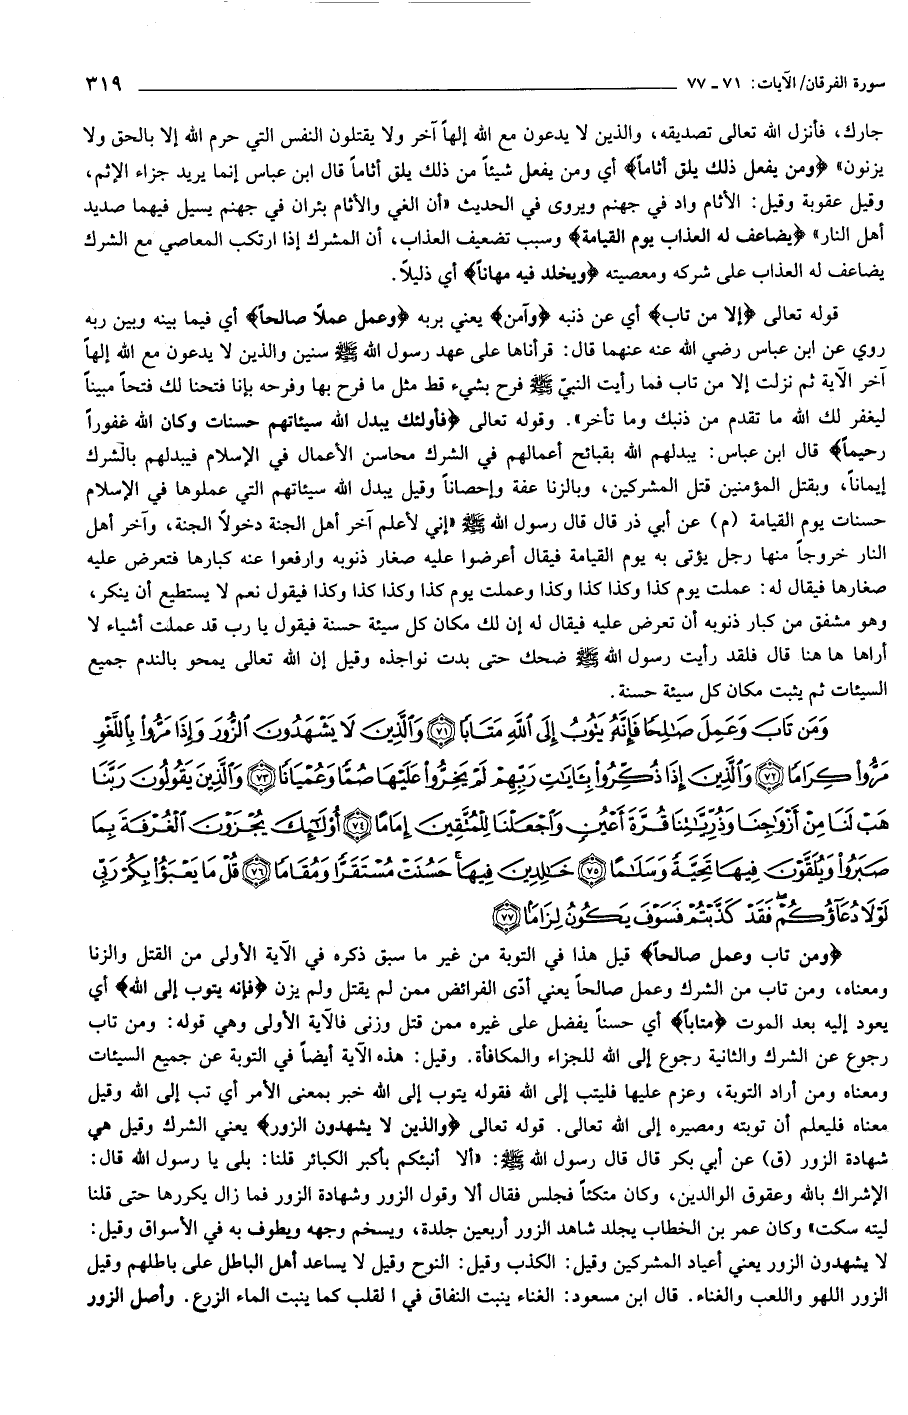 سورة الفرقان/ الآيات: ٧١ ـ ٧٧ ٣١٩
جارك، فأنزل الله تعالى تصديقه، والذين لا يدعون مع الله إلهاً آخر ولا يقتلون النفس التي حرم الله إلا بالحق ولا
يزنون» ﴿ومن يفعل ذلك يلق أثاماً﴾ أي ومن يفعل شيئاً من ذلك يلق أثاماً قال ابن عباس إنما يريد جزاء الإثم،
وقيل عقوبة وقيل: الأثام واد في جهنم ويروى في الحديث «أن الغي والأثام بئران في جهنم يسيل فيهما صديد
أهل النار» ﴿يضاعف له العذاب يوم القيامة﴾ وسبب تضعيف العذاب، أن المشرك إذا ارتكب المعاصي مع الشرك
يضاعف له العذاب على شركه ومعصيته ﴿ويخلد فيه مهاناً﴾ أي ذليلاً.
قوله تعالى ﴿إلا من تاب﴾ أي عن ذنبه ﴿وآمن﴾ يعني بربه ﴿وعمل عملاً صالحاً﴾ أي فيما بينه وبين ربه
روي عن ابن عباس رضي الله عنه عنهما قال: قرأناها على عهد رسول الله ﷺ سنين والذين لا يدعون مع الله إلهاً
آخر الآية ثم نزلت إلا من تاب فما رأيت النبيّ ﷺ فرح بشيء قط مثل ما فرح بها وفرحه بإنا فتحنا لك فتحاً مبيناً
ليغفر لك الله ما تقدم من ذنبك وما تأخر». وقوله تعالى ﴿فأولئك يبدل الله سيئاتهم حسنات وكان الله غفوراً
رحيماً﴾ قال ابن عباس: يبدلهم الله بقبائح أعمالهم في الشرك محاسن الأعمال في الإسلام فيبدلهم بالشرك
إيماناً، وبقتل المؤمنين قتل المشركين، وبالزنا عفة وإحصاناً وقيل يبدل الله سيئاتهم التي عملوها في الإسلام
حسنات يوم القيامة (م) عن أبي ذر قال قال رسول الله ﷺ «إني لأعلم آخر أهل الجنة دخولاً الجنة، وآخر أهل
النار خروجاً منها رجل يؤتى به يوم القيامة فيقال أعرضوا عليه صغار ذنوبه وارفعوا عنه كبارها فتعرض عليه
صغارها فيقال له: عملت يوم كذا وكذا كذا وكذا وعملت يوم كذا وكذا كذا وكذا فيقول نعم لا يستطيع أن ينكر،
وهو مشفق من كبار ذنوبه أن تعرض عليه فيقال له إن لك مكان كل سيئة حسنة فيقول يا رب قد عملت أشياء لا
أراها ها هنا قال فلقد رأيت رسول الله ﷺ ضحك حتى بدت نواجذه وقيل إن الله تعالى يمحو بالندم جميع
السيئات ثم يثبت مكان كل سيئة حسنة.
وَمَن تَابَ وَعَمِلَ صَٰلِحًا فَإِنَّهُۥ يَتُوبُ إِلَى ٱللَّهِ مَتَابًا ﴿٧١﴾ وَٱلَّذِينَ لَا يَشْهَدُونَ ٱلزُّورَ وَإِذَا مَرُّوا۟ بِٱللَّغْوِ
مَرُّوا۟ كِرَامًا ﴿٧٢﴾ وَٱلَّذِينَ إِذَا ذُكِّرُوا۟ بِـَٔايَٰتِ رَبِّهِمْ لَمْ يَخِرُّوا۟ عَلَيْهَا صُمًّا وَعُمْيَانًا ﴿٧٣﴾ وَٱلَّذِينَ يَقُولُونَ رَبَّنَا
هَبْ لَنَا مِنْ أَزْوَٰجِنَا وَذُرِّيَّٰتِنَا قُرَّةَ أَعْيُنٍ وَٱجْعَلْنَا لِلْمُتَّقِينَ إِمَامًا ﴿٧٤﴾ أُو۟لَٰٓئِكَ يُجْزَوْنَ ٱلْغُرْفَةَ بِمَا
صَبَرُوا۟ وَيُلَقَّوْنَ فِيهَا تَحِيَّةً وَسَلَٰمًا ﴿٧٥﴾ خَٰلِدِينَ فِيهَا ۚ حَسُنَتْ مُسْتَقَرًّا وَمُقَامًا ﴿٧٦﴾ قُلْ مَا يَعْبَؤُا۟ بِكُمْ رَبِّي
لَوْلَا دُعَآؤُكُمْ ۖ فَقَدْ كَذَّبْتُمْ فَسَوْفَ يَكُونُ لِزَامًۢا ﴿٧٧﴾
﴿ومن تاب وعمل صالحاً﴾ قيل هذا في التوبة من غير ما سبق ذكره في الآية الأولى من القتل والزنا
ومعناه، ومن تاب من الشرك وعمل صالحاً يعني أدّى الفرائض ممن لم يقتل ولم يزن ﴿فإنه يتوب إلى الله﴾ أي
يعود إليه بعد الموت ﴿متاباً﴾ أي حسناً يفضل على غيره ممن قتل وزنى فالآية الأولى وهي قوله: ومن تاب
رجوع عن الشرك والثانية رجوع إلى الله للجزاء والمكافأة. وقيل: هذه الآية أيضاً في التوبة عن جميع السيئات
ومعناه ومن أراد التوبة، وعزم عليها فليتب إلى الله فقوله يتوب إلى الله خبر بمعنى الأمر أي تب إلى الله وقيل
معناه فليعلم أن توبته ومصيره إلى الله تعالى. قوله تعالى ﴿والذين لا يشهدون الزور﴾ يعني الشرك وقيل هي
شهادة الزور (ق) عن أبي بكر قال قال رسول الله ﷺ: «ألا أنبئكم بأكبر الكبائر قلنا: بلى يا رسول الله قال:
الإشراك بالله وعقوق الوالدين، وكان متكئاً فجلس فقال ألا وقول الزور وشهادة الزور فما زال يكررها حتى قلنا
ليته سكت» وكان عمر بن الخطاب يجلد شاهد الزور أربعين جلدة، ويسخم وجهه ويطوف به في الأسواق وقيل:
لا يشهدون الزور يعني أعياد المشركين وقيل: الكذب وقيل: النوح وقيل لا يساعد أهل الباطل على باطلهم وقيل
الزور اللهو واللعب والغناء. قال ابن مسعود: الغناء ينبت النفاق في ا لقلب كما ينبت الماء الزرع. وأصل الزور